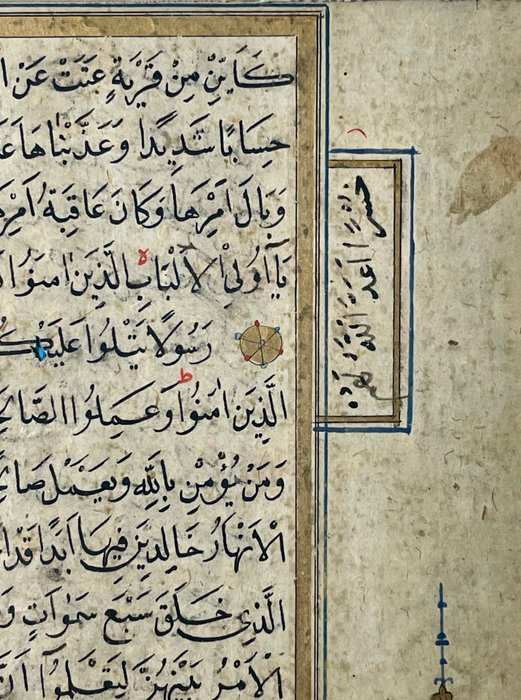 كَاَيِّنْ مِنْ قَرْيَةٍ عَتَتْ عَنْ ا
حِسَابًا شَدِيدًا وَعَذَّبْنَاهَا عَ
وَبَالَ اَمْرِهَا وَكَانَ عَاقِبَةُ اَمْرِهَ
يَآ اُولِى الْاَلْبَابِ الَّذِينَ اٰمَنُوا
رَسُولًا يَتْلُوا عَلَيْكُ
الَّذِينَ اٰمَنُوا وَعَمِلُوا الصَّالِحَ
وَمَنْ يُؤْمِنْ بِاللّٰهِ وَيَعْمَلْ صَالِحًا
الْاَنْهَارُ خَالِدِينَ فِيهَا اَبَدًا قَدْ اَ
الَّذِي خَلَقَ سَبْعَ سَمٰوَاتٍ وَ
الْاَمْرُ بَيْنَهُنَّ لِيَعْلَمُوا اَنَّ
خُسْرًا اَعَدَّ اللّٰهُ لَهُمْ